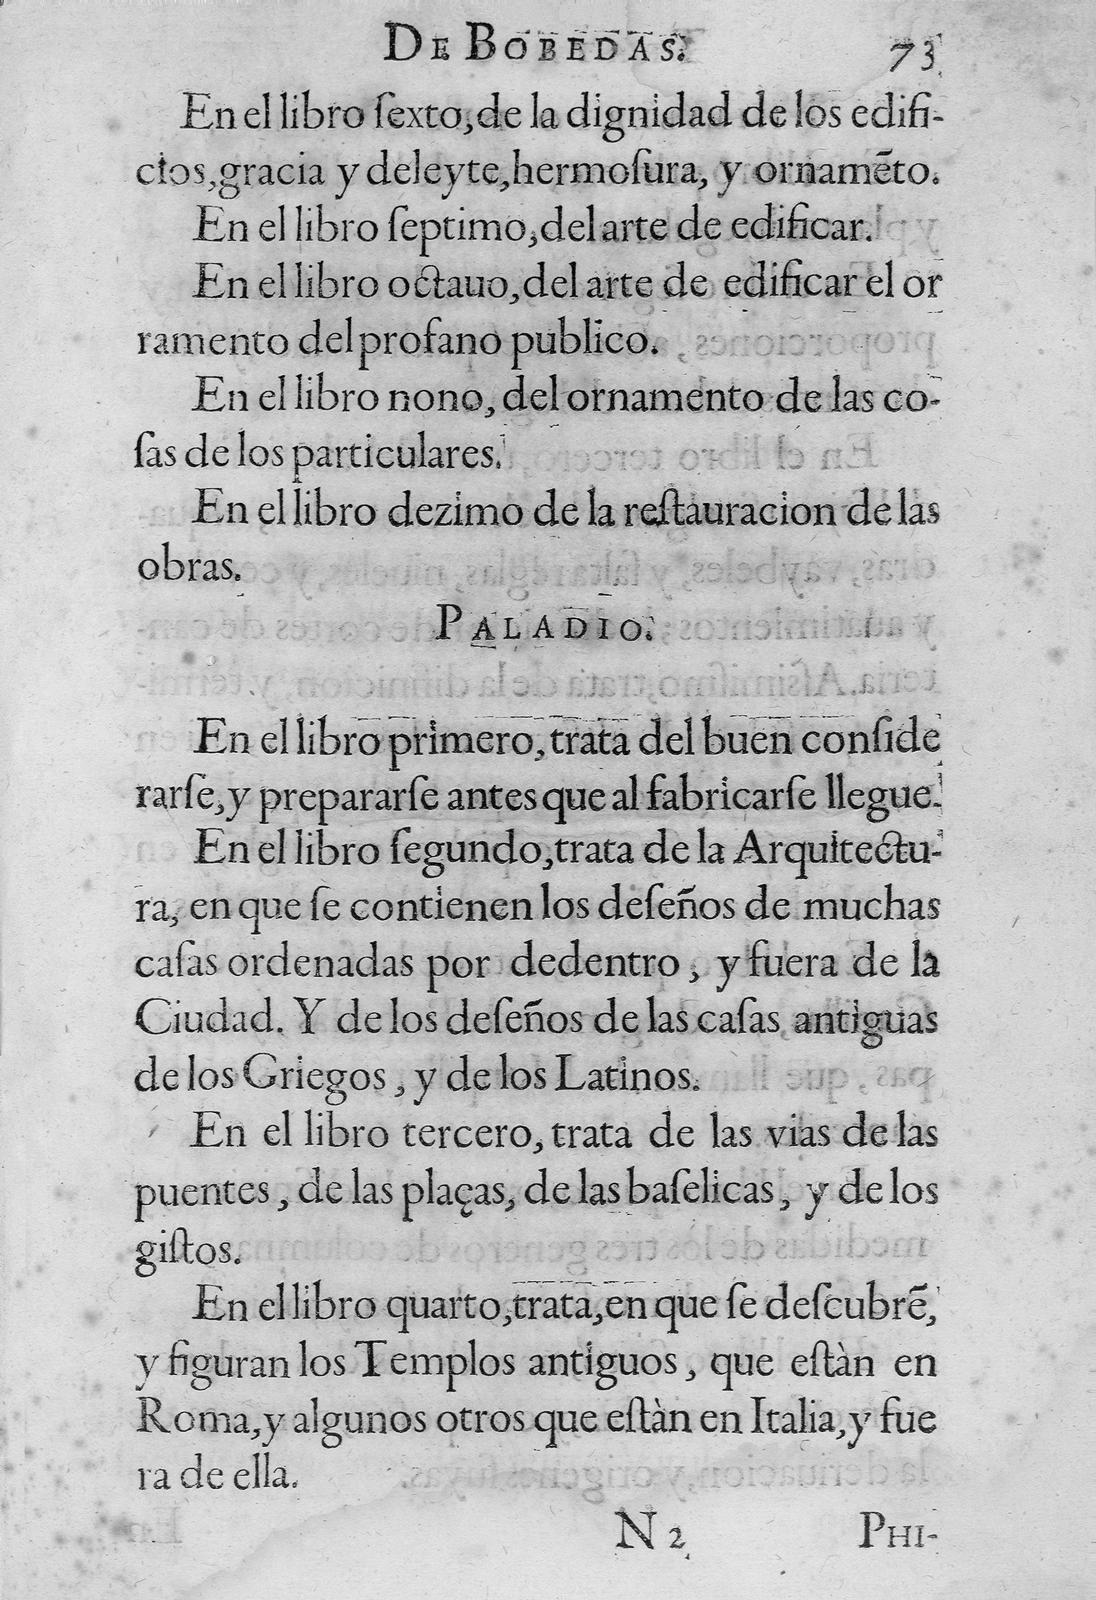 DE BOBEDAS. 73
En el libro ſexto, de la dignidad de los edifi-
cios, gracia y deleyte, hermoſura, y ornamẽto.
En el libro ſeptimo, del arte de edificar.
En el libro octauo, del arte de edificar el or
ramento del profano publico.
En el libro nono, del ornamento de las co-
ſas de los particulares.
En el libro dezimo de la reſtauracion de las
obras.
PALADIO.
En el libro primero, trata del buen conſide
rarſe, y prepararſe antes que al fabricarſe llegue.
En el libro ſegundo, trata de la Arquitectu-
ra, en que ſe contienen los deſeños de muchas
caſas ordenadas por dedentro, y fuera de la
Ciudad. Y de los deſeños de las caſas antiguas
de los Griegos, y de los Latinos.
En el libro tercero, trata de las vias de las
puentes, de las plaças, de las baſelicas, y de los
giſtos.
En el libro quarto, trata, en que ſe deſcubrẽ,
y figuran los Templos antiguos, que eſtàn en
Roma, y algunos otros que eſtàn en Italia, y fue
ra de ella.
N 2 PHI-